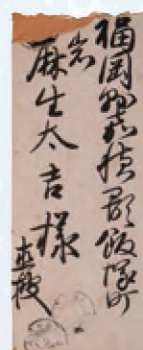 福岡縣嘉穂郡飯塚町
麻生太吉様
直披